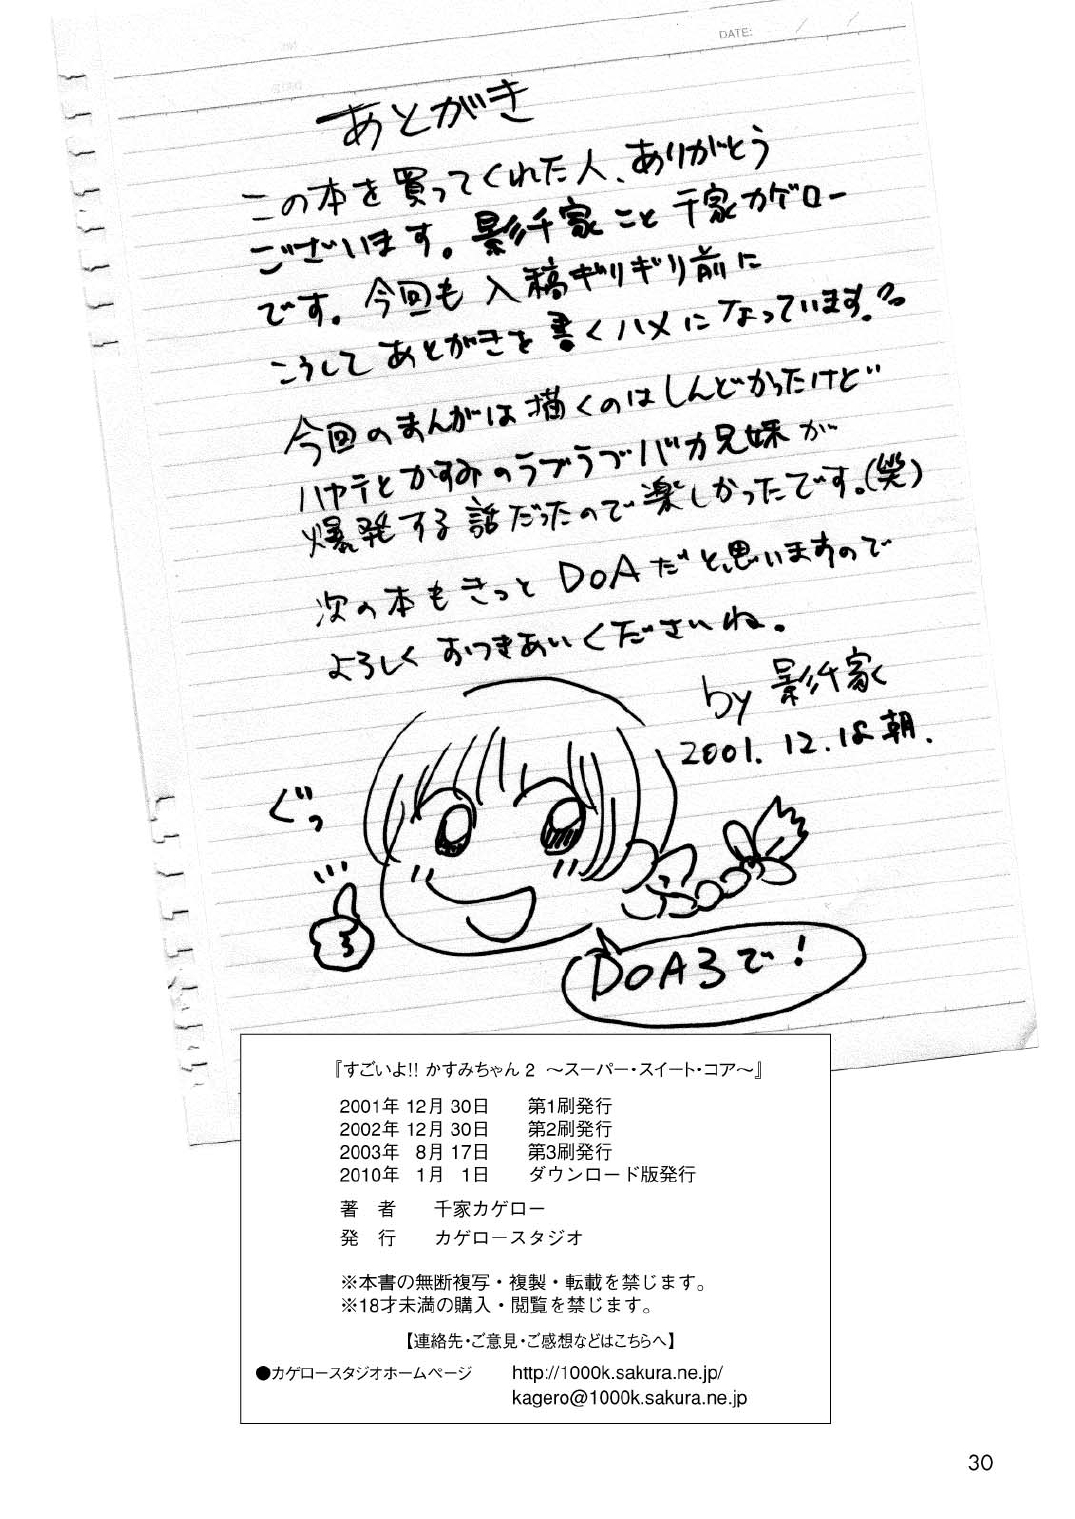 DATE: / /
あとがき
この本を買ってくれた人、ありがとう
ございます。影千家こと千家カゲロー
です。今回も入稿ギリギリ前に
こうしてあとがきを書くハメになっています。
今回のまんがは描くのはしんどかったけど
ハヤテとかすみのラブラブバカ兄妹が
爆発する話だったので楽しかったです。(笑)
次の本もきっとDOAだと思いますので
よろしくおつきあいくださいね。
by 影千家
2001. 12. 18 朝.
ぐっ
DOA3で!
『すごいよ!! かすみちゃん 2 ～スーパー・スイート・コア～』
2001年 12月 30日 第1刷発行
2002年 12月 30日 第2刷発行
2003年 8月 17日 第3刷発行
2010年 1月 1日 ダウンロード版発行
著 者 千家カゲロー
発 行 カゲロースタジオ
※本書の無断複写・複製・転載を禁じます。
※18才未満の購入・閲覧を禁じます。
【連絡先・ご意見・ご感想などはこちらへ】
●カゲロースタジオホームページ http://1000k.sakura.ne.jp/
kagero@1000k.sakura.ne.jp
30